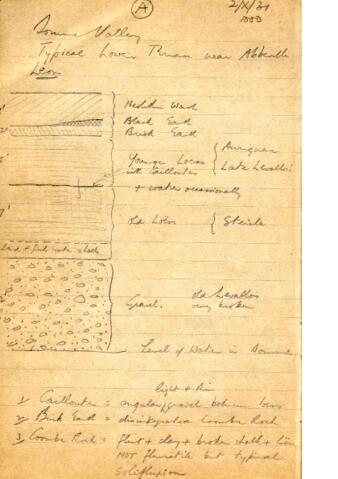 A
2/X/31
Somme Valley
Typical Lower Thran near Abbeville
Neolithic Wash
Black Earth
Brick Earth
Younger Loess
with Cailloutis
+ water occasionally
{ Aurignac
Late Levallois
Old Loess
{ Sterile
Gravel.
old Levallois
very broken
Level of Water in Somme
light & thin
1 Cailloutis = angular gravel between loess
2 Brick Earth = disintegrated Coombe Rock
3 Coombe Rock = flint + clay + broken chalk +
NOT fluviatile but typical
Solifluxion